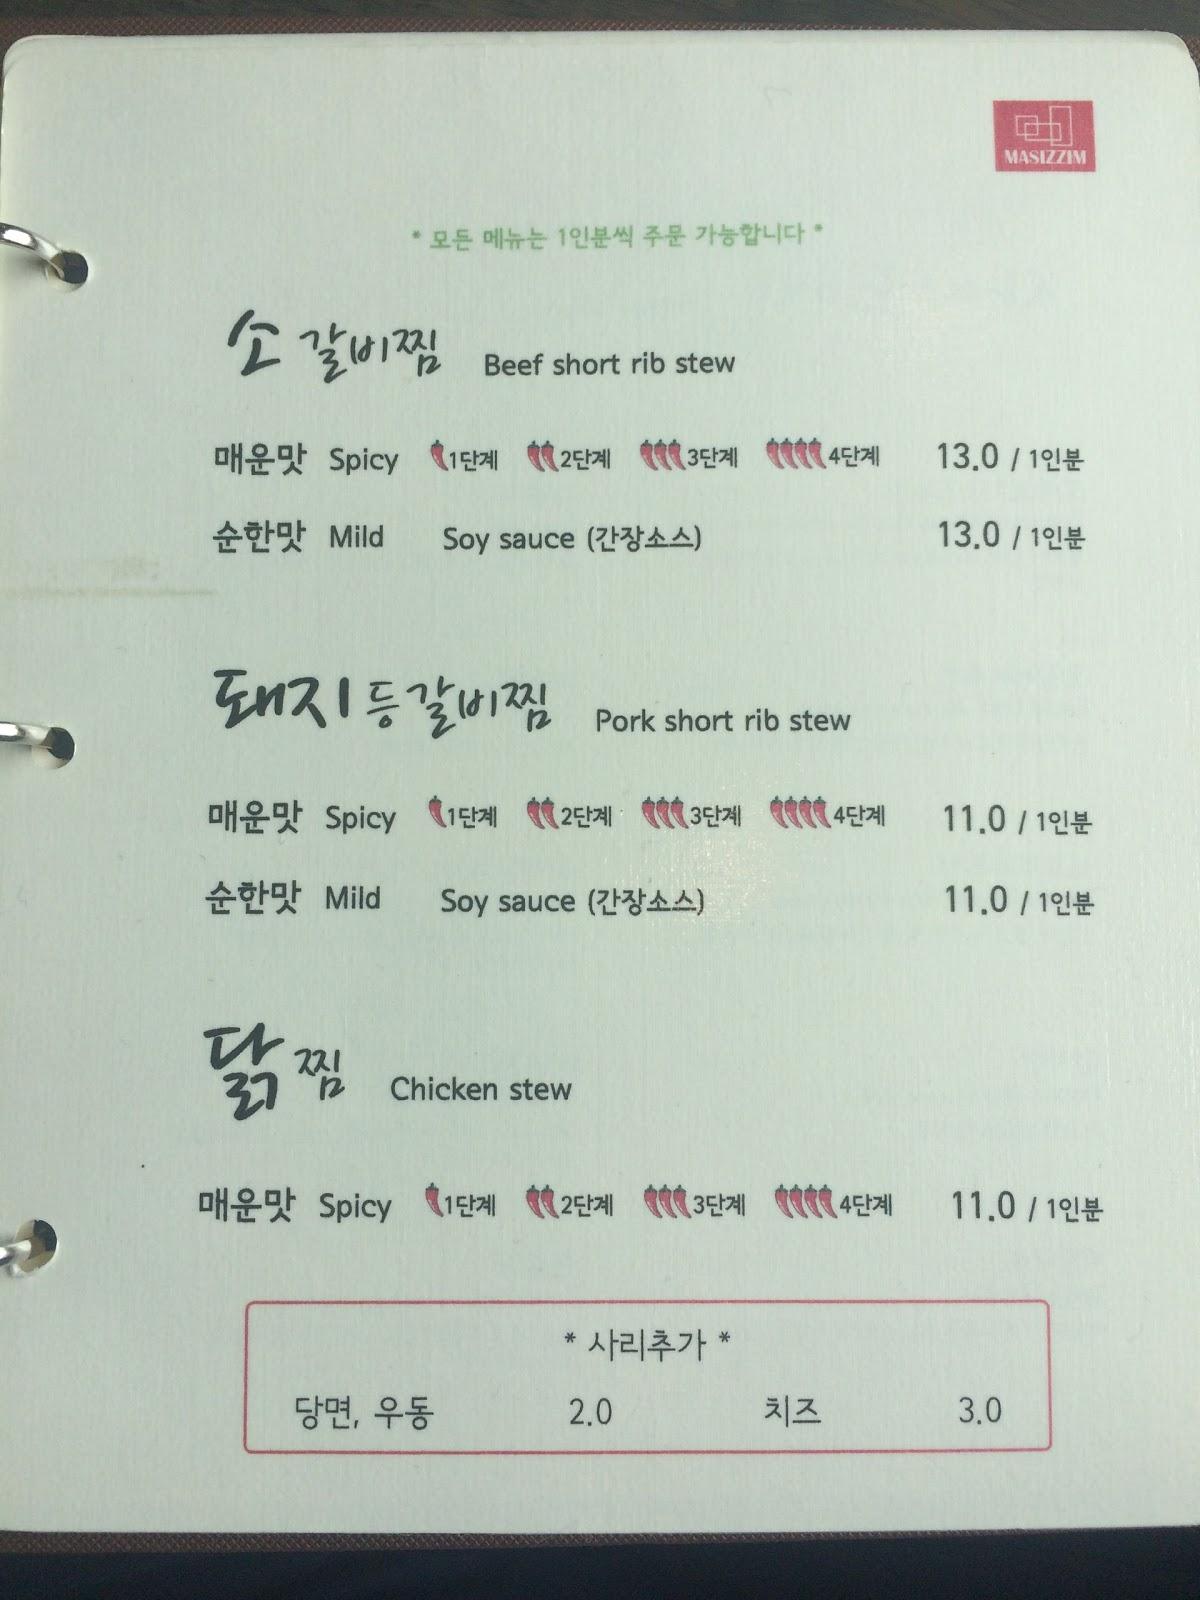 MASIZZIM
* 모든 메뉴는 1인분씩 주문 가능합니다 *
소 갈비찜 Beef short rib stew
매운맛 Spicy 1단계 2단계 3단계 4단계 13.0 / 1인분
순한맛 Mild Soy sauce (간장소스) 13.0 / 1인분
돼지 등갈비찜 Pork short rib stew
매운맛 Spicy 1단계 2단계 3단계 4단계 11.0 / 1인분
순한맛 Mild Soy sauce (간장소스) 11.0 / 1인분
닭찜 Chicken stew
매운맛 Spicy 1단계 2단계 3단계 4단계 11.0 / 1인분
* 사리추가 *
당면, 우동 2.0 치즈 3.0